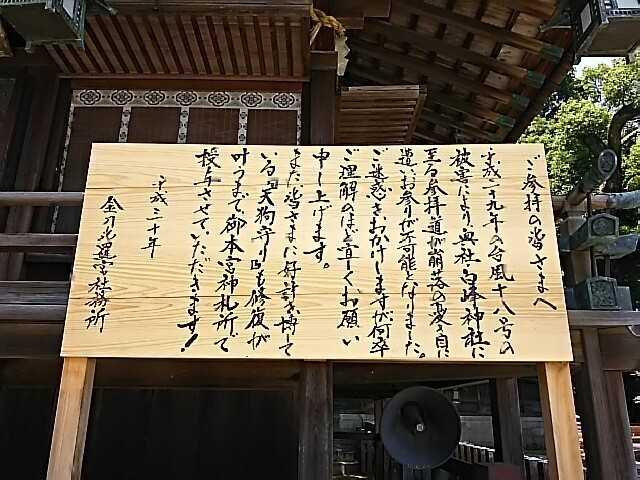 ご参拝の皆さまへ
平成二十九年の台風十八号の
被害により奥社・白峰神社に
至る参拝道が崩落の憂き目に
遭いお参りが不可能となりました。
ご迷惑をおかけしますが何卒
ご理解のほど宜しくお願い
申し上げます。
また皆さまに好評を博して
いる『天狗守り』も修復が
叶うまで御本宮神札所で
授与させていただきます！
平成三十年
金刀比羅宮社務所